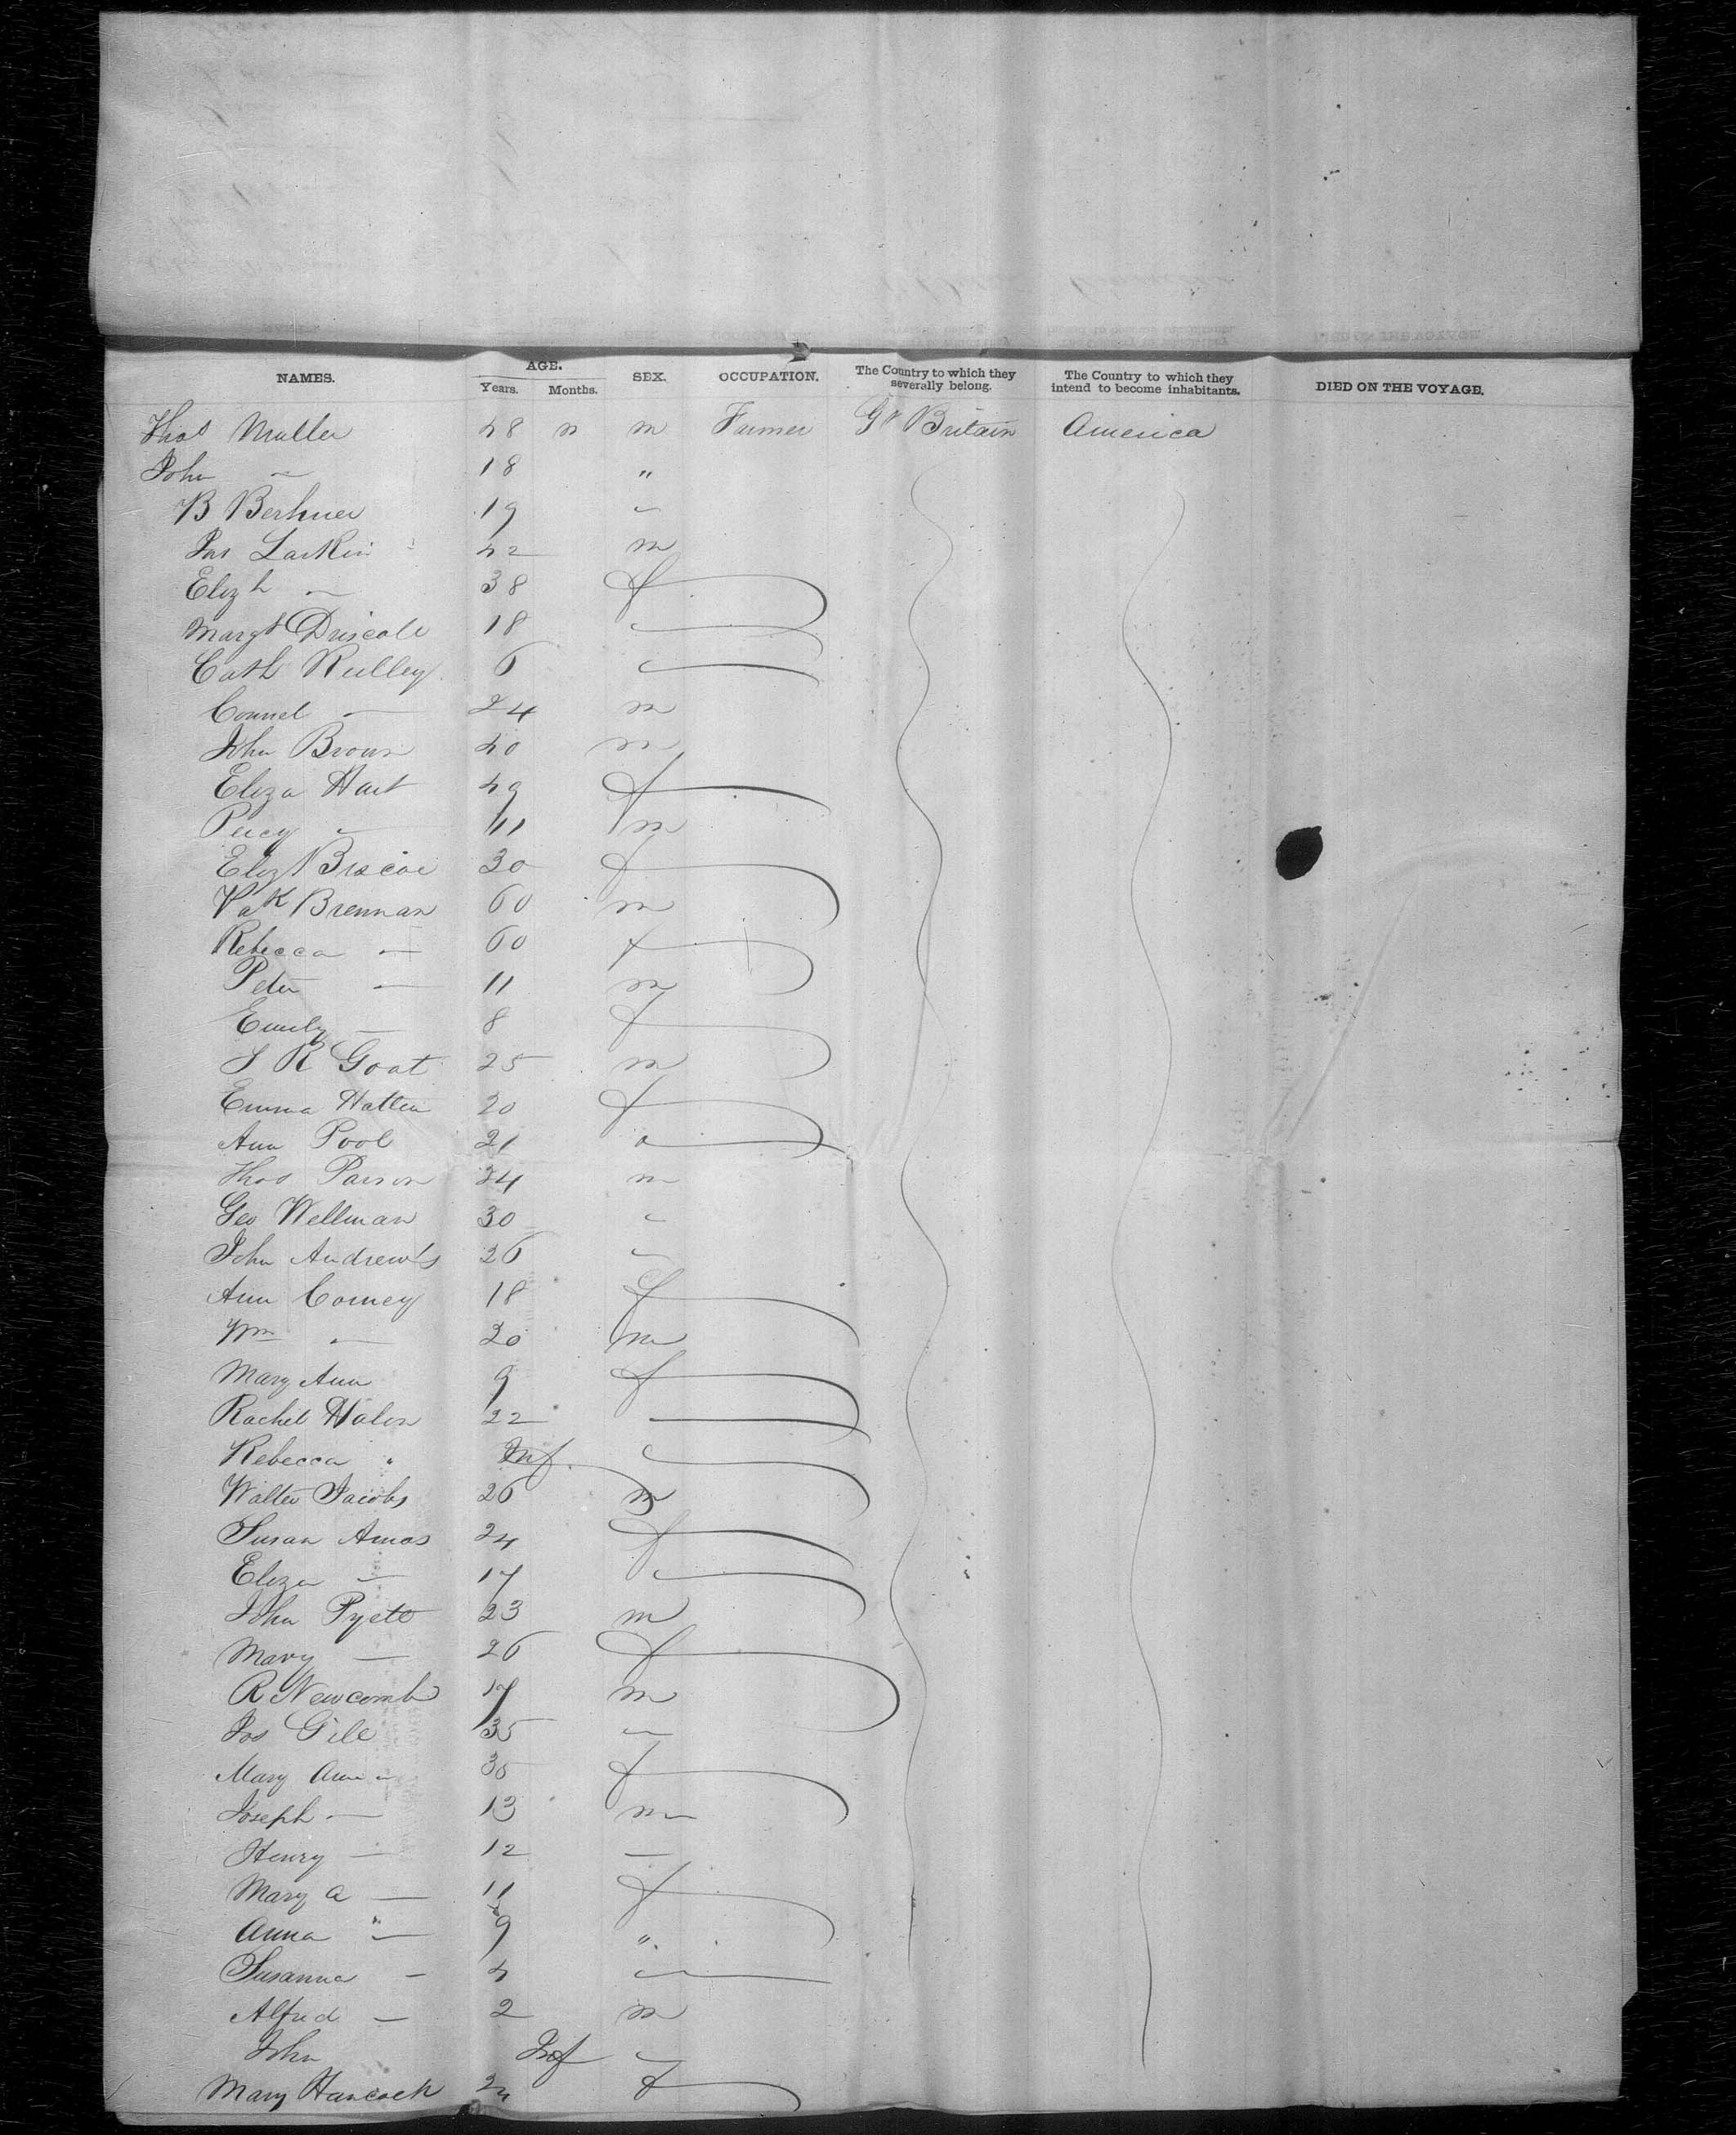 NAMES. AGE. Years. Months. SEX. OCCUPATION. The Country to which they severally belong. The Country to which they intend to become inhabitants. DIED ON THE VOYAGE.
Thos Muller 48 m Farmer Gt Britain America
John — 18 "
B 19
Jas Larkin 42 m
Elizh — 38 f
Margt Driscole 18
Cath 6
Connel — 24 m
John Brown 40 m
Eliza Hart 49 f
Percy 11 m
Eliz Briscoe 30 f
Pak Brennan 60 m
Rebecca — 60 f
Peter — 11 m
Emily — 8 f
S R Goat 25 m
Emma Hatten 20 f
Ann Pool 21
Thos Parson 24 m
Geo Wellman 30
John Andrews 26
Ann Comey 18 f
Wm — 20 m
Mary Ann 9 f
Rachel 22
Rebecca " Inf
Walter Jacobs 26 m
Susan Amos 24 f
Eliza — 17
John 23 m
Mary — 26 f
R Newcomb 17 m
Jos Gile 35
Mary Ann 35 f
Joseph — 13 m
Henry — 12 —
Mary A — 11 f
Anna " — 9 "
Susanna — 4
Alfred — 2 m
John Inf
Mary Hancock 24 f